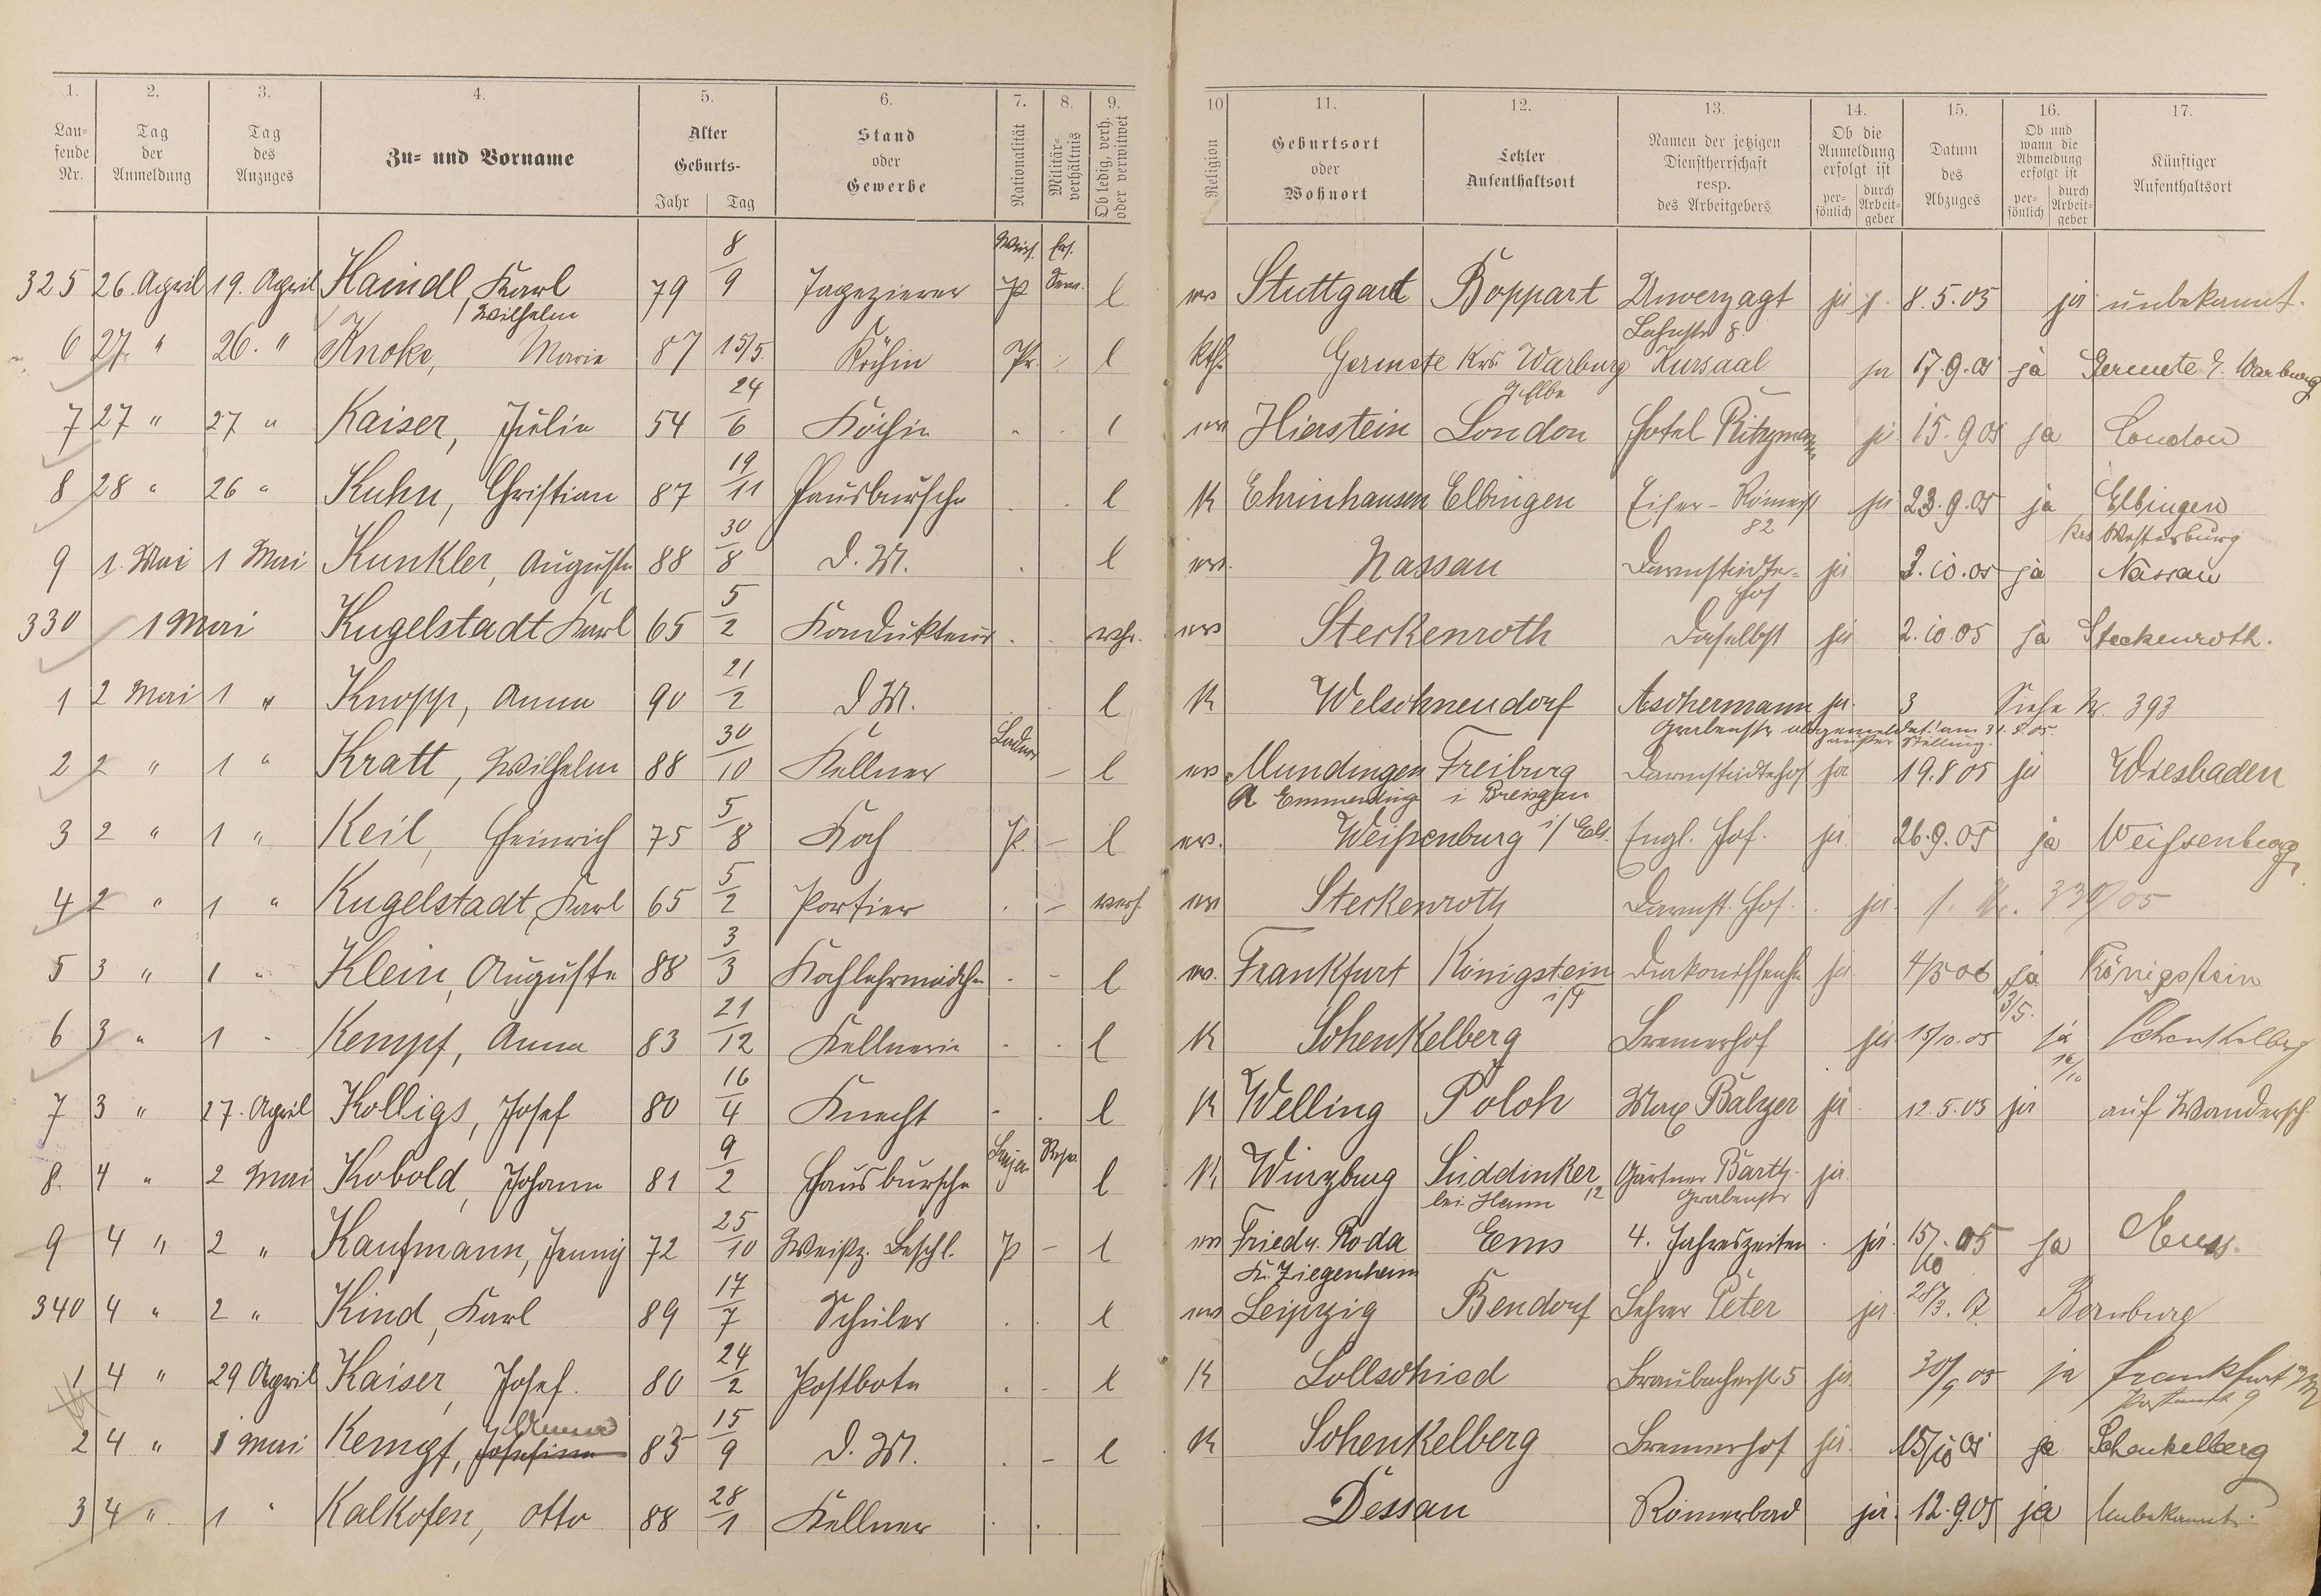 1. 2. 3. 4. 5. 6. 7. 8. 9. 10 11. 12. 13. 14. 15. 16. 17.
Lau-
fende
Nr.
Tag
der
Anmeldung
Tag
des
Anzuges
Zu- und Vorname
Alter
Geburts-
Jahr Tag
Stand
oder
Gewerbe
Nationalität
Militär-
verhältnis
Ob ledig, verh.
oder verwitwet
Religion
Geburtsort
oder
Wohnort
Letzter
Aufenthaltsort
Namen der jetzigen
Dienstherrschaft
resp.
des Arbeitgebers
Ob die
Anmeldung
erfolgt ist
per-
sönlich
durch
Arbeit-
geber
Datum
des
Abzuges
Ob und
wann die
Abmeldung
erfolgt ist
per-
sönlich
durch
Arbeit-
geber
Künftiger
Aufenthaltsort
325 26. April 19. April Haindl, Karl Wilhelm 79 8/9 Tapezierer l ev Stuttgart Boppart Unverzagt Lahnstr 8. ja 8.5.05 ja unbekannt.
6 27. " 26. " Knoke, Marie 87 15/5. Köchin Pr. l kth. Germete Krs. Warburg Kursaal ja 17.9.05 ja Germete K. Warburg
7 27 " 27 " Kaiser, Julie 54 24/6 Köchin l ev Hierstein London Hotel Ritzmann ja 15.9 05 ja London
8 28 " 26 " Kuhn, Christian 87 19/11 Hausbursche l K Ehrinhausen Elbingen Eiser - Römerst 82 ja 23.9.05 ja Elbingen Krs Westerburg
9 1. Mai 1 Mai Kunkler, Auguste 88 30/8 D. M. l ev. Nassau Darmstädter-hof ja 2.10.05 ja Nassau
330 1 Mai Kugelstadt Karl 65 5/2 Kondukteur verh. ev Steckenroth Daselbst ja 2.10.05 ja Steckenroth.
1 2 Mai 1 " Knopp, Anna 90 21/2 D M. l K Welschneudorf Aschermann ja. 3 Siehe Nr. 393
Grabenstr abgemeldet! am 31.5.05.
außer Stellung.
2 2 " 1 " Kratt, Wilhelm 88 30/10 Kellner – l ev Mundingen A Emmending Freiburg i Breisgau Darmstädterhof ja 19.8 05 ja Wiesbaden
3 2 " 1 " Keil, Heinrich 75 5/8 Koch P. – l ev. Weißenburg i/ Els. Engl. Hof. ja. 26.9.05 ja Weißenburg
4 2 " 1 " Kugelstadt, Karl 65 5/2 Portier . – verh. ev Steckenroth Darmst. Hof. ja. s. Nr. 330/05
5 3 " 1 " Klein, Auguste 88 3/3 Kochlehrmädch. . – l ev. Frankfurt Königstein i/T Diakonissenh. ja 4/5 06 ja 3/5. Königstein
6 3 " 1 " Kempf, Anna 83 21/12 Kellnerin l K Schenkelberg Bremerhof ja 15/10.05 ja 16/10 Schenkelberg
7 3 " 27. April Kolligs, Josef 80 16/4 Knecht l K Welling Poloh Max Balzer ja 12.5.05 ja auf Wandersch.
8. 4 " 2 Mai Kobold, Johann 81 9/2 Hausbursche l K Würzburg Süddinker bei Hamm Gärtner Barth Grabenstr 12 ja.
9 4 " 2 " Kaufmann, Jenny 72 25/10 Weißz. Beschl. P – l ev Friedr. Roda Kr. Ziegenheim Ems 4. Jahreszeiten ja. 15/10 05 ja
340 4 " 2 " Kind, Karl 89 17/7 Schüler l ev Leipzig Bendorf Lehrer Peter ja 28/3. 07 Bernburg
1 4 " 29 April Kaiser, Josef. 80 24/2 Postbote . – l K Lollschied Braubacherst 5 ja 30/9 05 ja Frankfurt a/M Postamt 9
2 4 " 1 Mai Kempf, Josefine 83 15/9 D. M. . – l K Schenkelberg Bremerhof ja. 15/10 05 ja Schenkelberg
3 4 " 1 " Kalkofen, Otto 88 28/1 Kellner Dessau Römerbad ja. 12.9.05 ja Unbekannt.